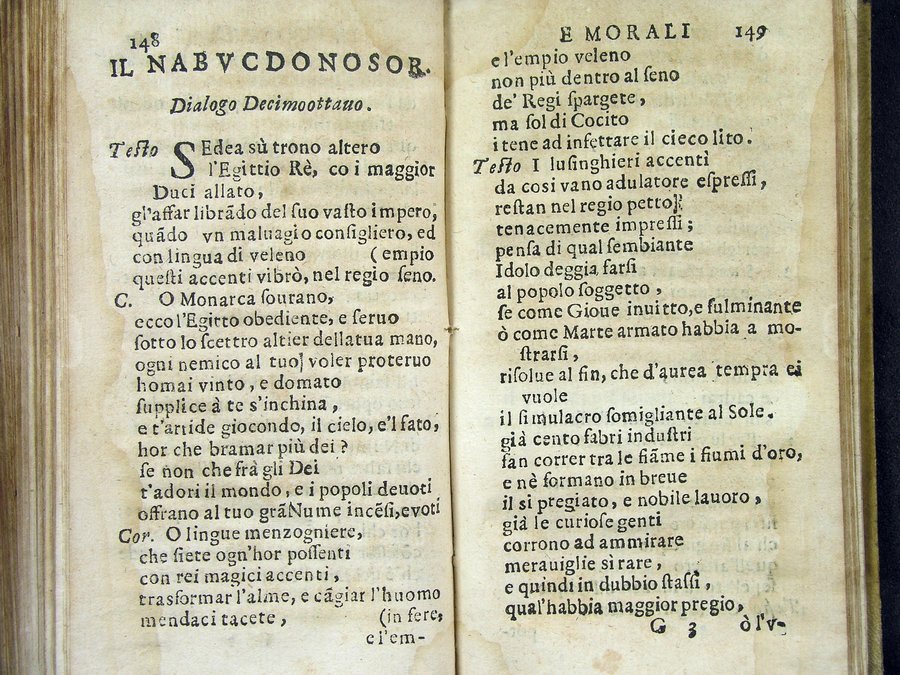 148
IL NABVCDONOSOR.
Dialogo Decimoottauo.
Testo SEdea sù trono altero
l'Egittio Rè, co i maggior
Duci allato,
gl'affar librãdo del suo vasto impero,
quãdo vn maluagio consigliero, ed
con lingua di veleno (empio
questi accenti vibrò, nel regio seno.
C. O Monarca sourano,
ecco l'Egitto obediente, e seruo
sotto lo scettro altier della tua mano,
ogni nemico al tuo] voler proteruo
homai vinto, e domato
supplice à te s'inchina,
e t'artide giocondo, il cielo, e'l fato,
hor che bramar più dei?
se non che frà gli Dei
t'adori il mondo, e i popoli deuoti
offrano al tuo grãNume incẽsi, e voti
Cor. O lingue menzogniere,
che siete ogn'hor possenti
con rei magici accenti,
trasformar l'alme, e cãgiar l'huomo
mendaci tacete, (in fere,
e l'em-
E MORALI 149
e l'empio veleno
non più dentro al seno
de' Regi spargete,
ma sol di Cocito
i tene ad infettare il cieco lito.
Testo I lusinghieri accentì
da cosi vano adulatore espressi,
restan nel regio petto]
tenacemente impressi;
pensa di qual sembiante
Idolo deggia farsi
al popolo soggetto,
se come Gioue inuitto, e fulminante
ò come Marte armato habbia a mo-
strarsi,
risolue al fin, che d'aurea tempra ei
vuole
il simulacro somigliante al Sole.
già cento fabri industri
fan correr tra le fiãme i fiumi d'oro,
e nè formano in breue
il si pregiato, e nobile lauoro,
già le curiose genti
corrono ad ammirare
merauiglie si rare,
e quindi in dubbio stassi,
qual'habbia maggior pregio,
G 3 ò l'v-